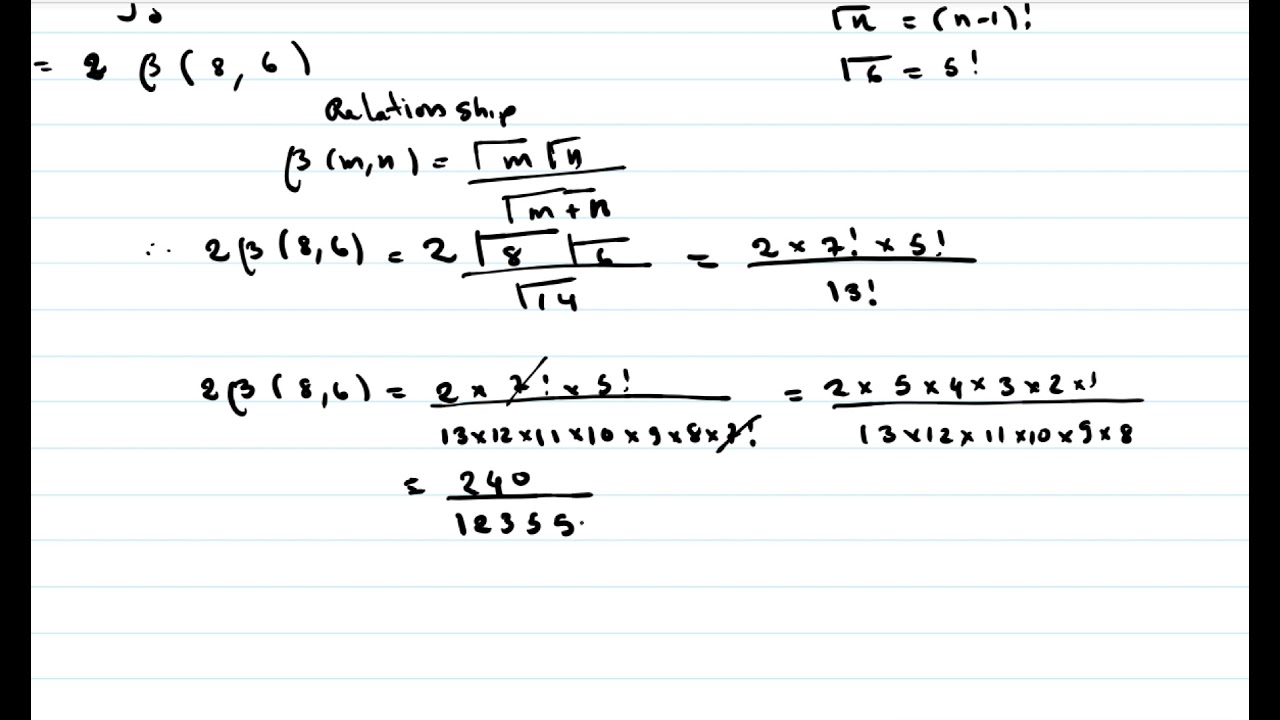 √n = (n-1)!
= 2 β(8, 6)
√6 = 5!
Relationship
β(m,n) = √m √n / √m+n
∴ 2β(8,6) = 2 √8 √6 / √14 = 2 × 7! × 5! / 13!
2β(8,6) = 2 × 7! × 5! / 13×12×11×10×9×8×7! = 2 × 5×4×3×2×1 / 13×12×11×10×9×8
= 240 / 12355.